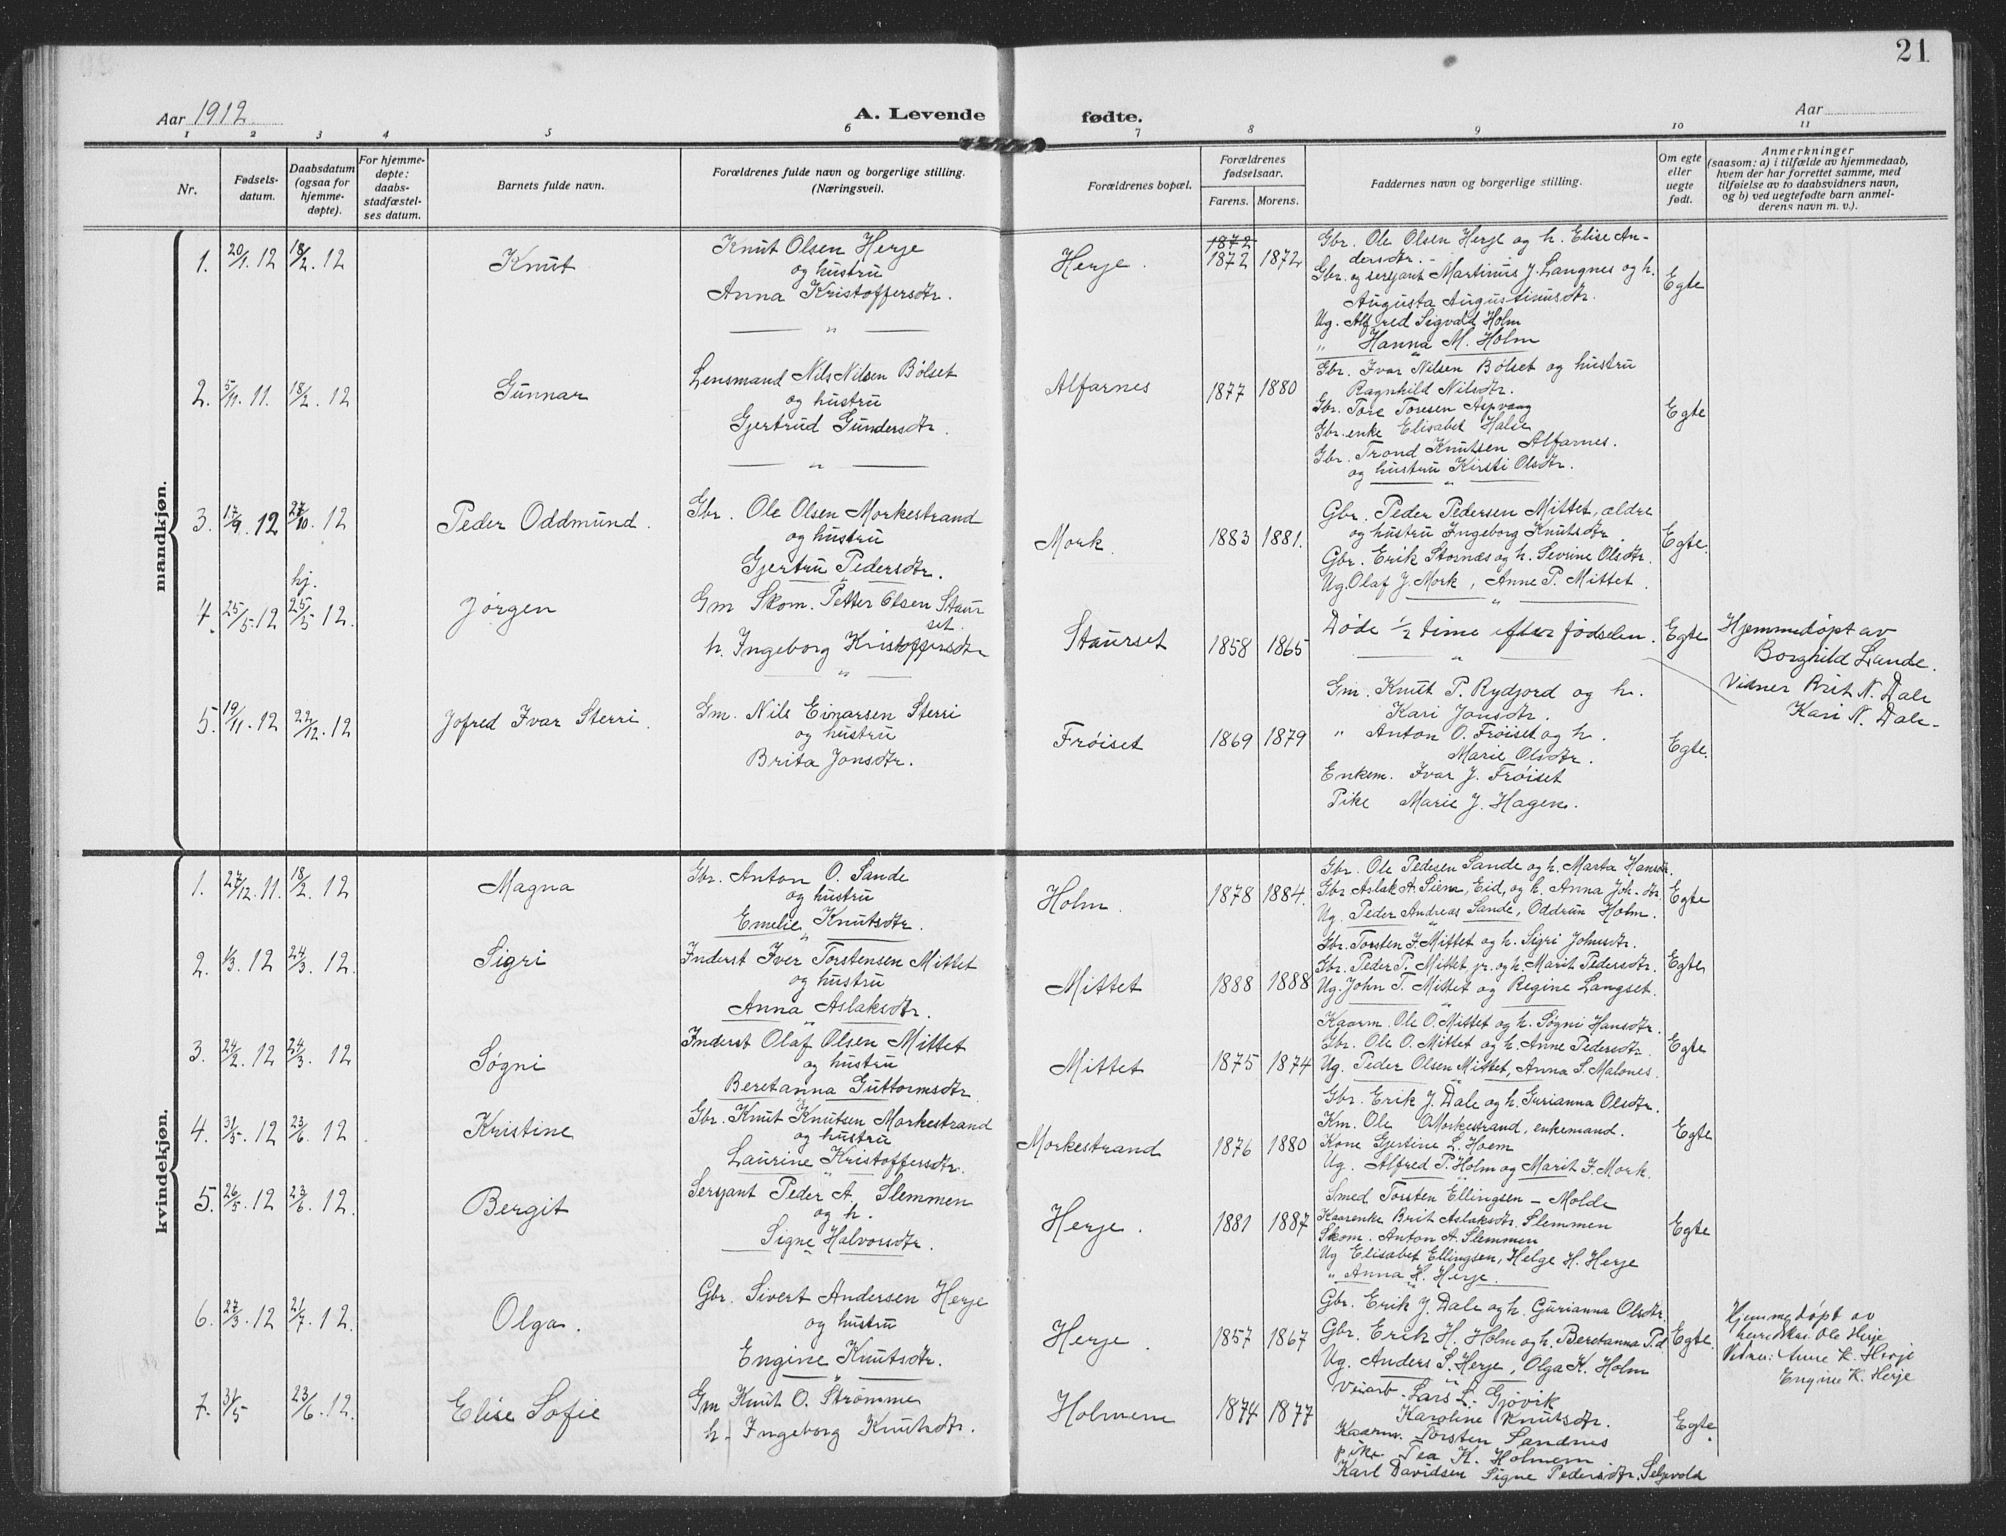 21
Aar 1912
A. Levende
fødte.
Aar
1 2 3 4 5 6 7 8 9 10 11
Nr.
Fødsels-
datum.
Daabsdatum
(ogsaa for
hjemme-
døpte).
For hjemme-
døpte:
daabs-
stadfæstel-
ses datum.
Barnets fulde navn.
Forældrenes fulde navn og borgerlige stilling.
(Næringsvei).
Forældrenes bopæl.
Forældrenes
fødselsaar.
Farens. Morens.
Faddernes navn og borgerlige stilling.
Om egte
eller
uegte
født.
Anmerkninger
(saasom: a) i tilfælde av hjemmedaab,
hvem der har forrettet samme, med
tilføielse av to daabsvidners navn,
og b) ved uegtefødte barn anmel-
derens navn m. v.).
mandkjøn.
1. 20/1. 12 18/2. 12 Knut
Knut Olsen Herje
og hustru
Anna Kristoffersdtr.
Herje. 1872 1872 1872
Gbr. Ole Olsen Herje og h. Elise An-
dersdtr.
Gbr. og sersjant Martinus J. Langnes og h.
Augusta Augustinusdtr.
Ug. Alfred Sigvald Holm
" Hanna M. Holm
Egte
2. 5/11. 11. 18/2. 12 Gunnar
Lensmand Nils Nilsen Bølset
og hustru
Gjertrud Gundersdtr.
Alfarnes 1877 1880
Gbr. Ivar Nilsen Bølset og hustru
Ragnhild Nilsdtr.
Gbr. Tore Toresen Aspvaag
Gbr. enke Elisabet Halse
Gbr. Trond Knutsen Alfarnes.
og hustru Kirsti Olsdtr.
Egte
3. 17/9. 12 27/10. 12 Peder Oddmund.
Gbr. Ole Olsen Morkestrand
og hustru
Gjertru Pedersdtr.
Mork. 1883 1881.
Gbr. Peder Pedersen Mittet, ældre
og hustru Ingeborg Knutsdtr.
Gbr. Erik Stornæs og h. Sevrine Olsdtr.
Ug. Olaf J. Mork, Anne P. Mittet.
Egte.
4. 25/5. 12 hj. 25/5. 12. Jørgen
Gm Skom. Petter Olsen Staur
set.
h. Ingeborg Kristoffersdtr
Staurset 1858 1865
Døde 1/2 time efter fødselen.
Egte
Hjemmedøpt av
Borghild Lande.
Vidner Brit N. Dale
Kari N. Dale.
5. 19/11. 12 22/12. 12 Jofred Ivar Sterri.
Gm. Nils Einarsen Sterri
og hustru
Brita Jonsdtr.
Frøiset 1869 1879
Gm. Knut P. Rydjord og h.
Kari Jonsdtr.
" Anton O. Frøiset og h.
Marie Olsdtr.
Enkem. Ivar J. Frøiset
Pike Marie J. Hagen.
Egte.
kvindekjøn.
1. 27/12. 11. 18/2. 12 Magna
Gbr. Anton O. Sande
og hustru
Emelie Knutsdtr.
Holm. 1878 1884.
Gbr. Ole Pedersen Sande og h. Marta Hansdtr.
Gbr Aslak A. Siem, Eid, og h. Anna Joh. dtr
Ug. Peder Andreas Sande, Oddrun Holm.
Egte
2. 1/3. 12 24/3. 12. Sigri
Inderst Iver Torstensen Mittet
og hustru
Anna Aslaksdtr.
Mittet 1888 1888
Gbr. Torsten I. Mittet og h. Sigri Johnsdtr.
Gbr. Peder P. Mittet jr. og h. Marit Pedersdtr.
Ug. John T. Mittet og Regine Langset.
Egte
3. 24/2. 12 24/3. 12 Søgni
Inderst Olaf Olsen Mittet
og hustru
Beretanna Guttormsdtr.
Mittet 1875 1874
Kaarm. Ole O. Mittet og h. Søgni Hansdtr.
Gbr. Ole O. Mittet og h. Anne Pedersdtr.
Ug. Peder Olsen Mittet, Anna S. Malones.
Egte
4. 31/5. 12 23/6. 12. Kristine
Gbr. Knut Knutsen Morkestrand
og hustru
Laurine Kristoffersdtr.
Morkestrand 1876 1880
Gbr. Erik J. Dale og h. Gurianna Olsdtr.
Km. Ole Morkestrand, enkemand.
Kone Gjertine L. Hoem
Ug. Alfred P. Holm og Marit J. Mork.
Egte
5. 26/5. 12 23/6. 12. Bergit
Sersjant Peder A. Slemmen
og h.
Signe Halvorsdtr.
Herje. 1881 1887
Smed Torsten Ellingsen - Molde
Kaarenke Brit Aslaksdtr. Slemmen
Skom. Anton A. Slemmen
Ug Elisabet Ellingsen, Helge H. Herje
" Anna H. Herje.
Egte
6. 27/3. 12 21/7. 12. Olga.
Gbr. Sivert Andersen Herje
og hustru
Engine Knutsdtr.
Herje. 1857 1867
Gbr. Erik J. Dale og h. Gurianna Olsdtr.
Gbr. Erik H. Holm og h. Beretanna P.d.
Ug. Anders S. Herje, Olga K. Holm
Egte.
Hjemmedøpt av
Ole Herje
Vidner: Anne K. Herje
Engine K. Herje
7. 31/5 23/6. 12. Elise Sofie
Gm Knut O. Strømme
h. Ingeborg Knutsdtr.
Holmem 1874 1877
Veiarb. Lars L. Gjøvik
Karoline Knutsdtr.
Kaarm. Torsten Sandnes
pike Tea K. Holmem
Karl Davidsen Signe Pedersdtr. Seljevold
Egte.